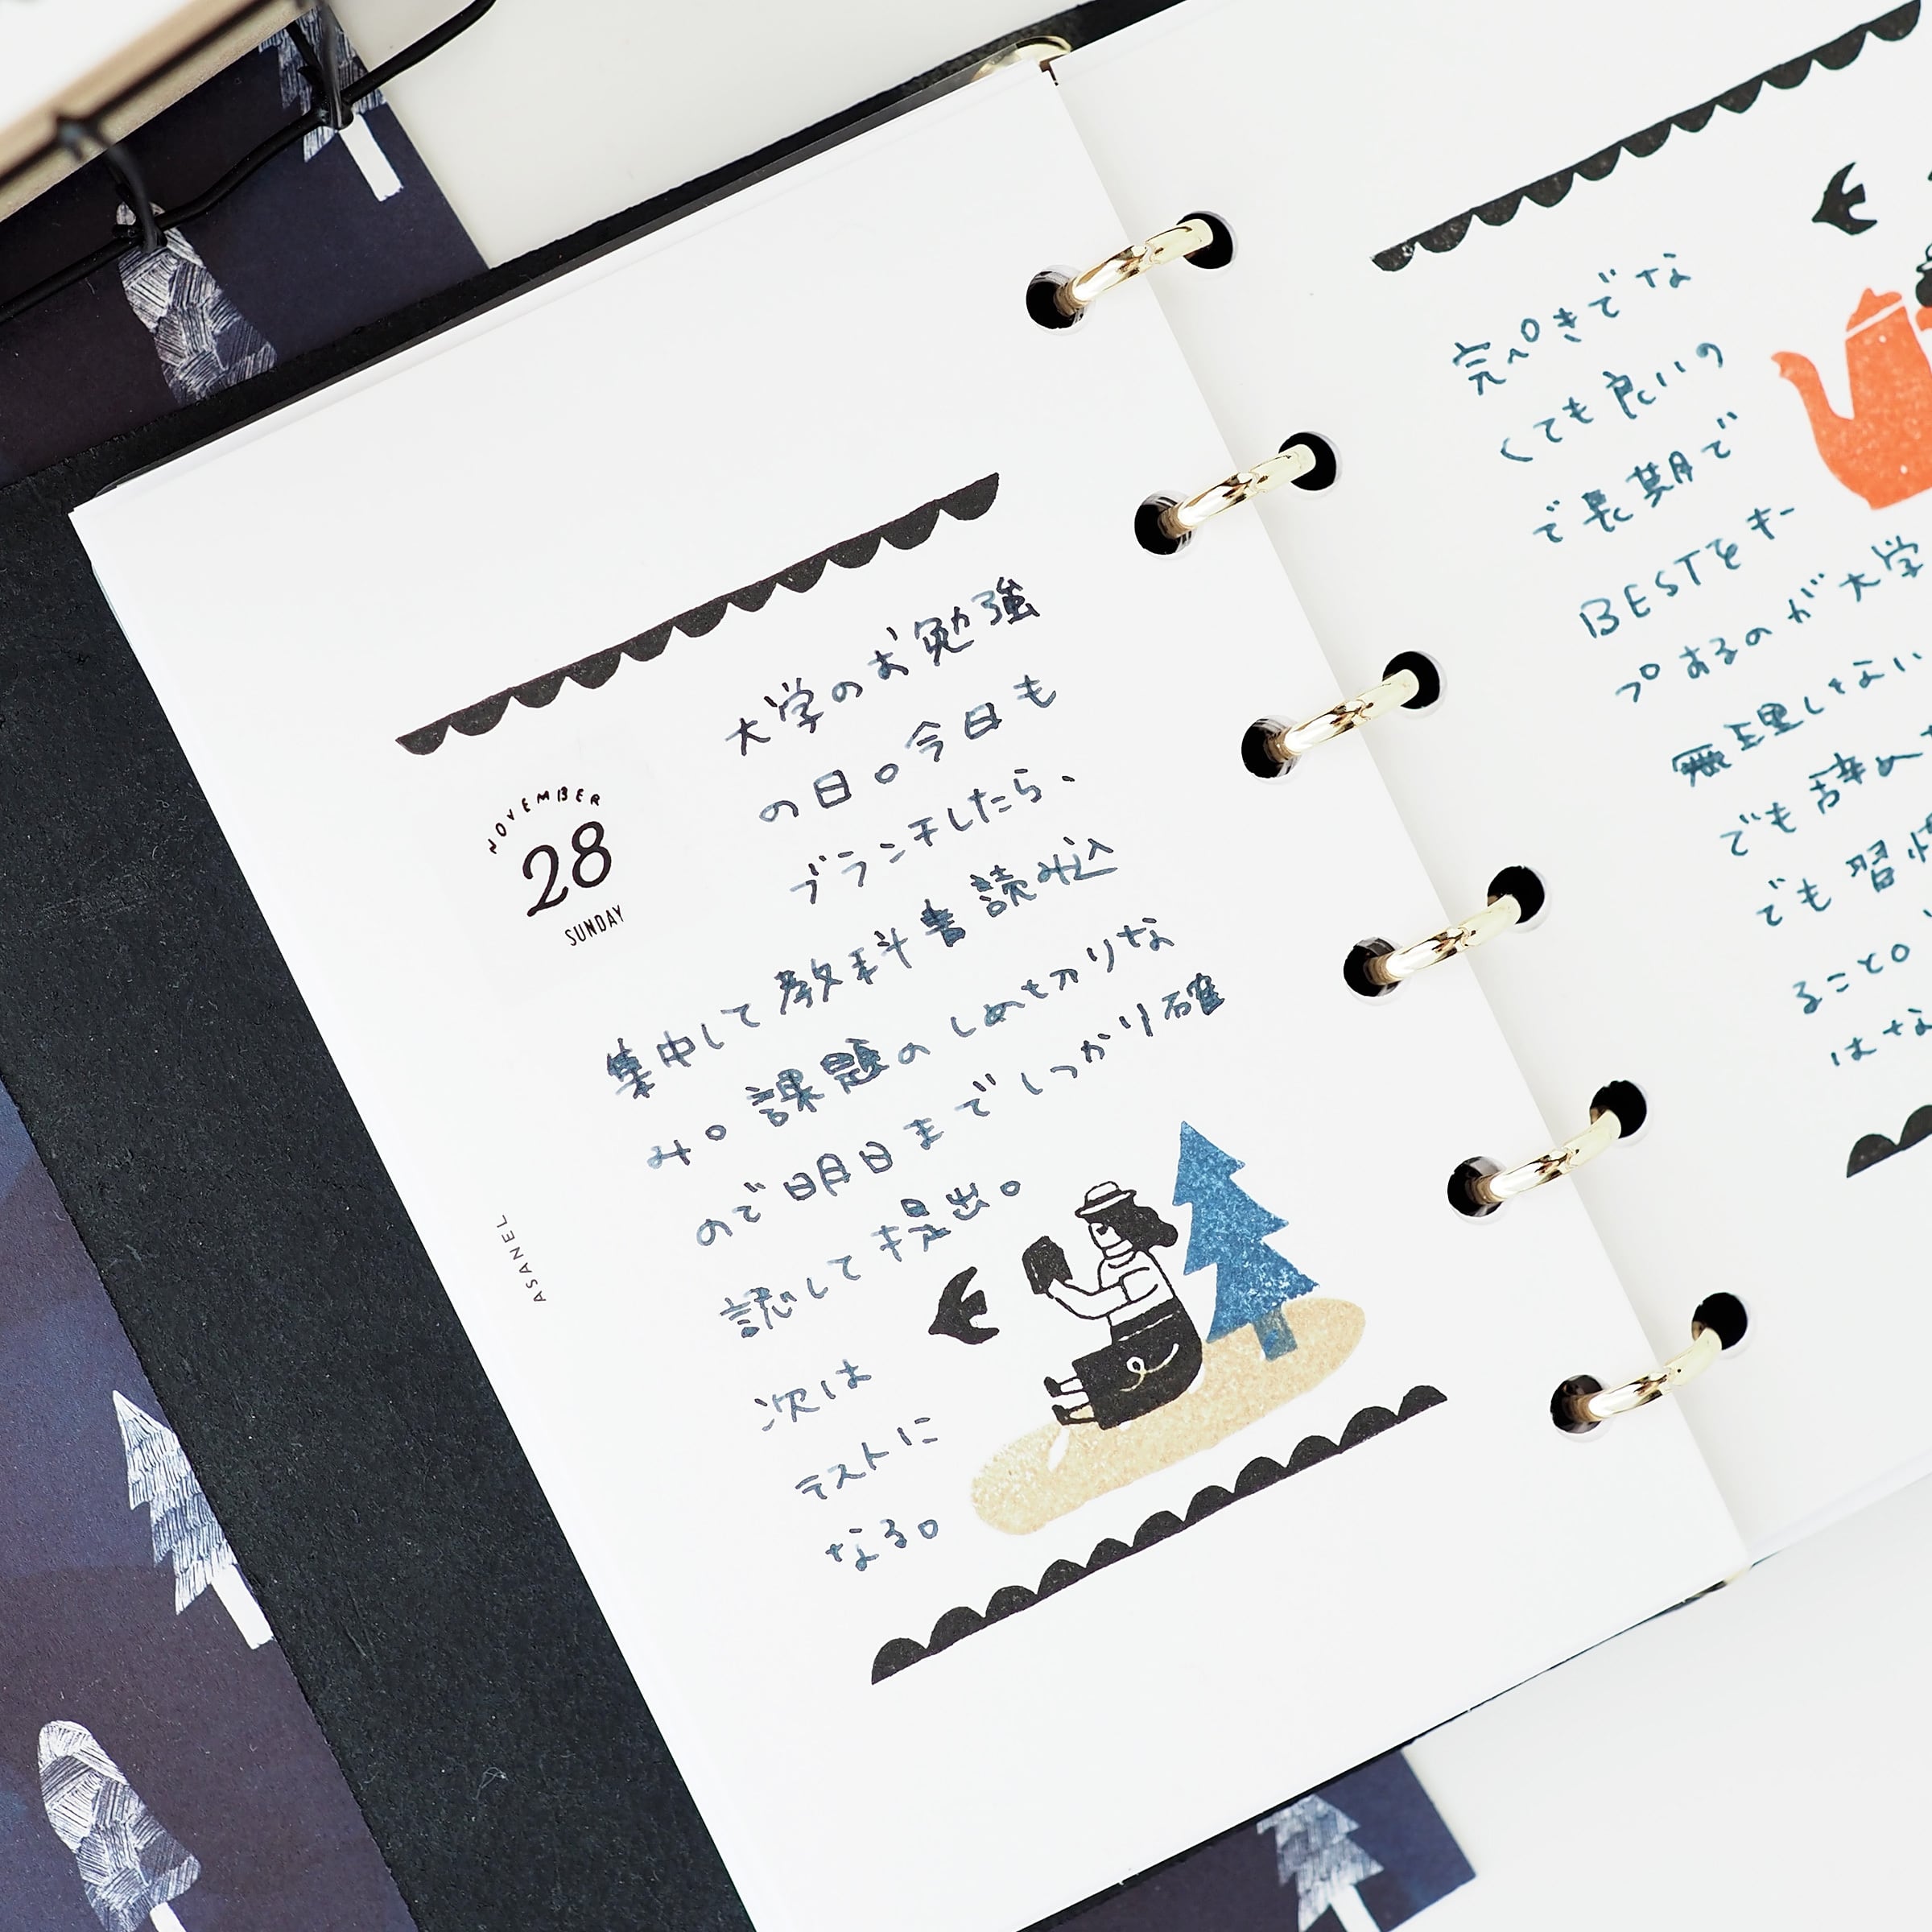 NOVEMBER
28
SUNDAY
大学のお勉強
の日。今日も
ブランチしたら、
集中して教科書読み込
み。課題のしめ切りな
ので明日までしっかり確
認して提出。
次は
テストに
なる。
ASANEL
完ぺきでな
くても良いの
で長期で
BESTをキー
プするのが大学
無理しない
でも辞め
でも習慣
ること。
はな